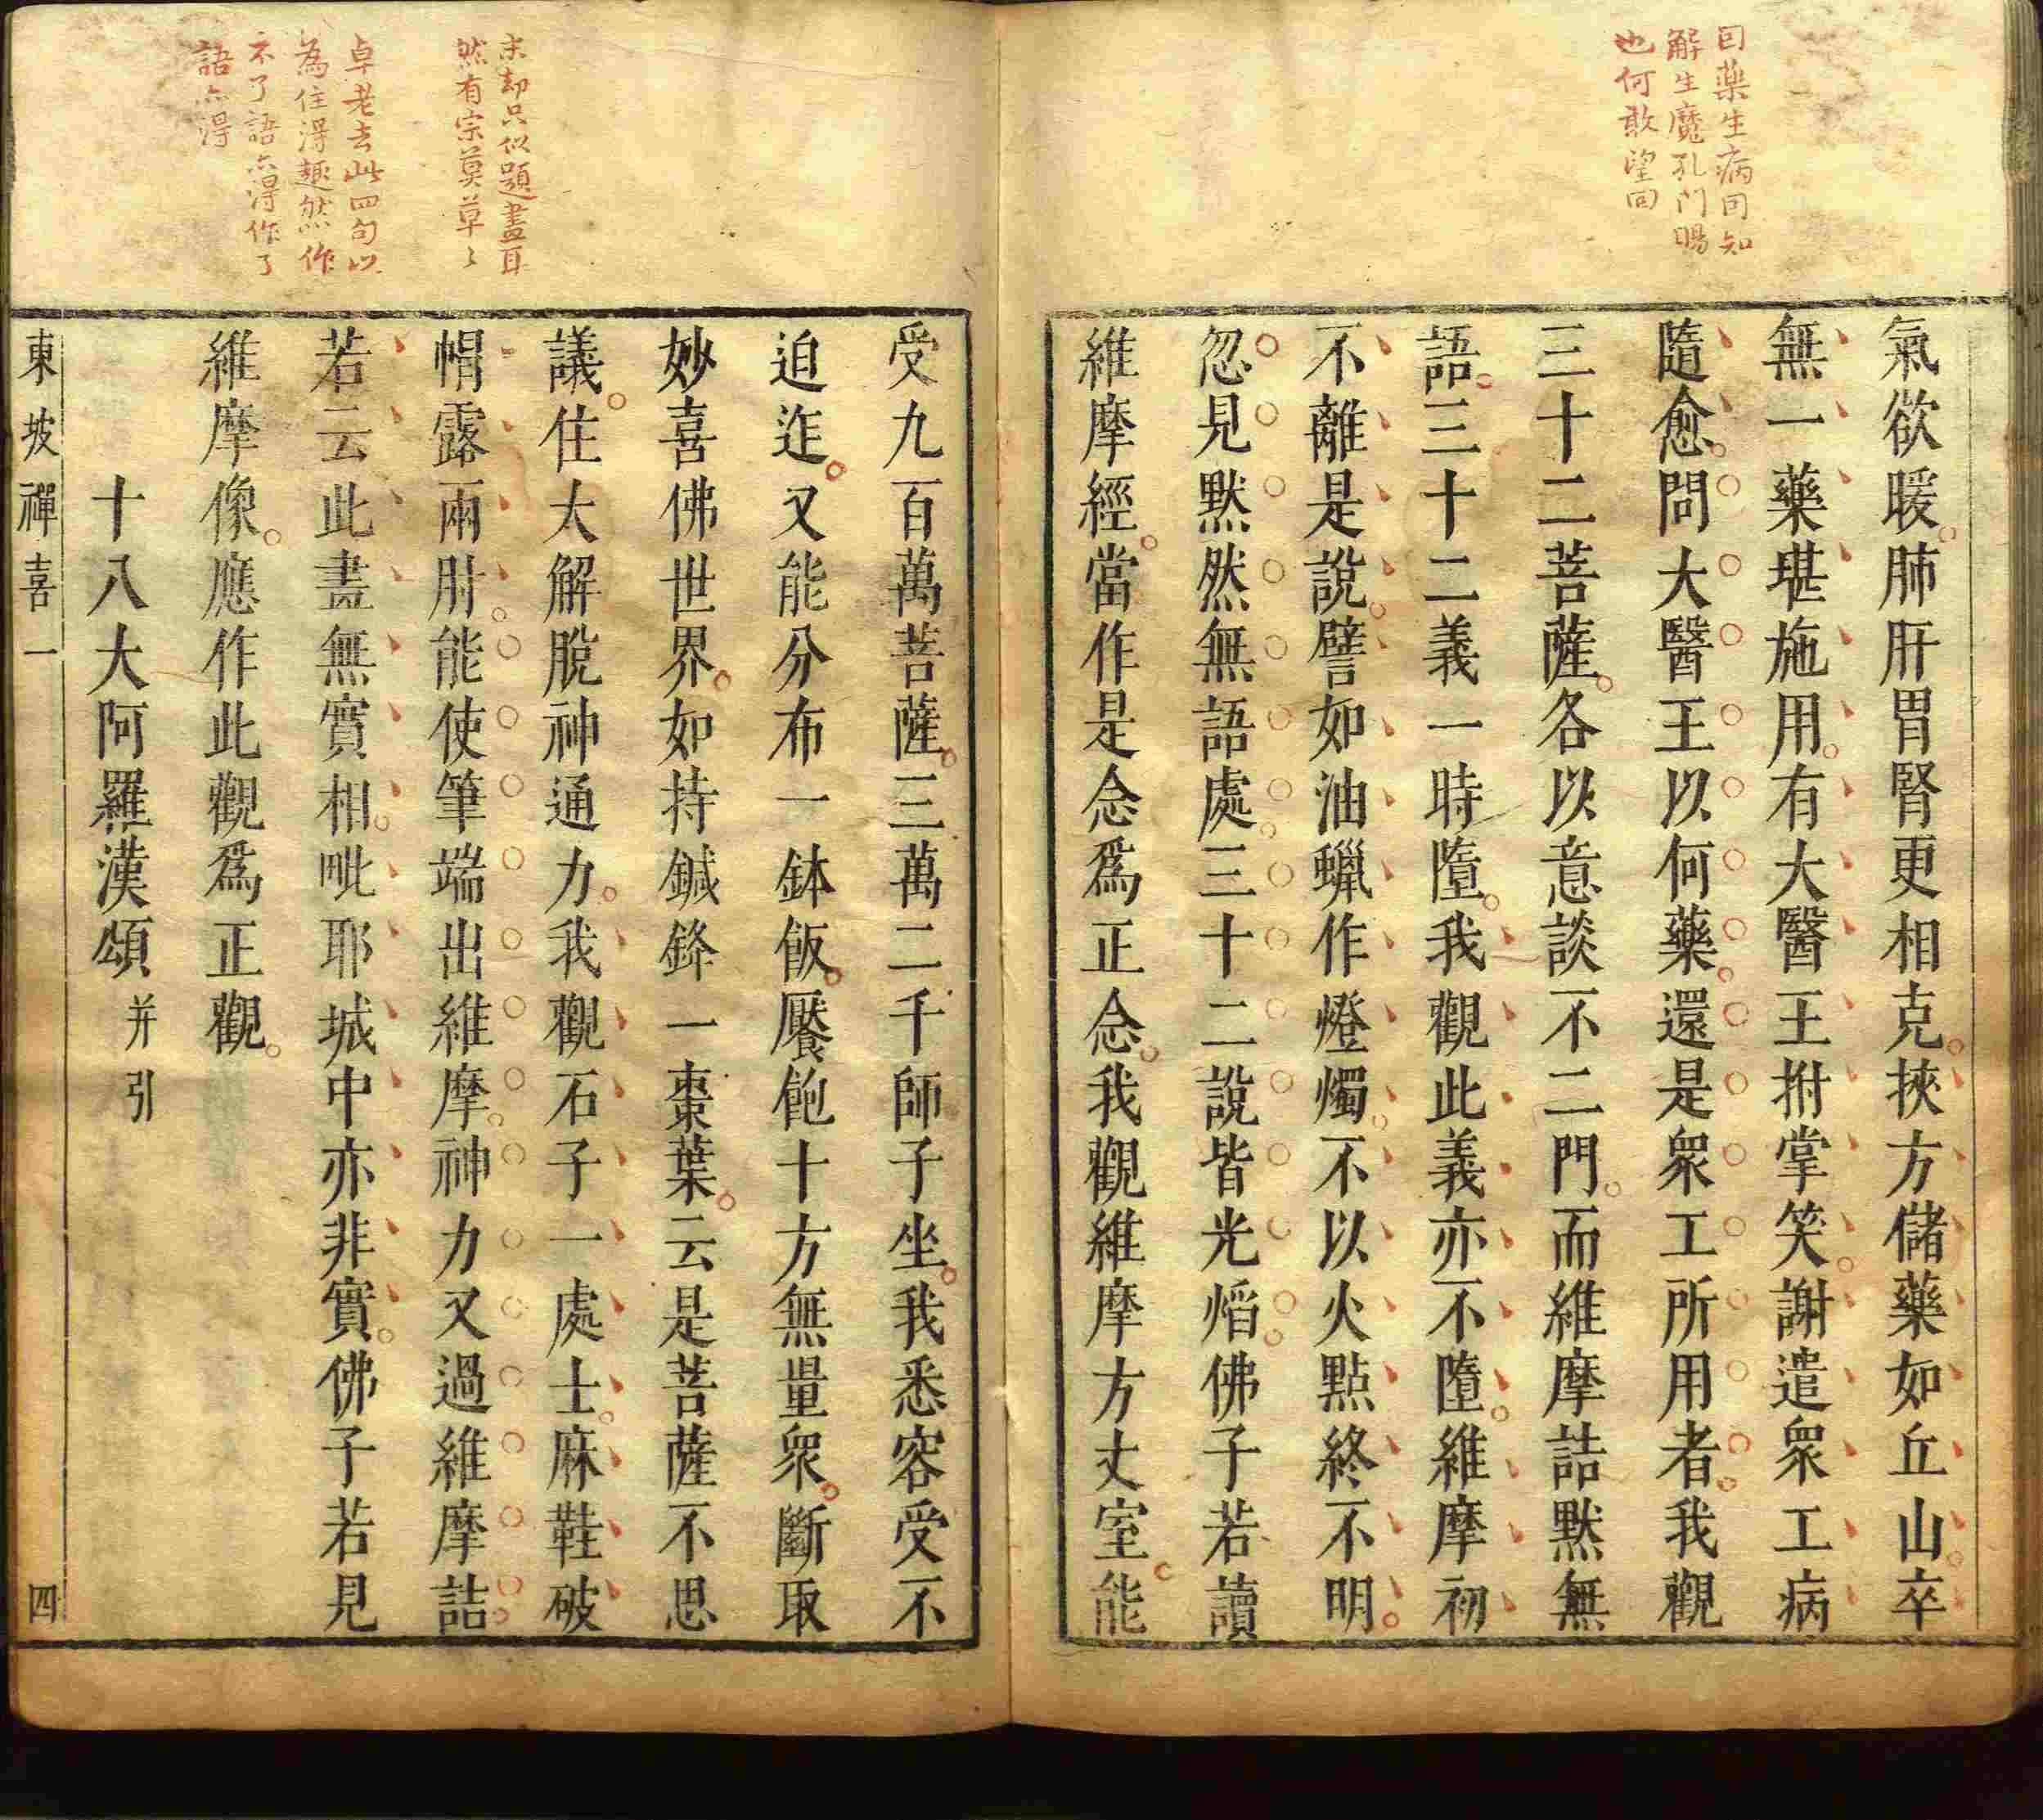 因藥生病因知
解生魔孔門賜
也何敢望回
氣欲暖肺肝胃腎更相克挾方儲藥如丘山卒
無一藥堪施用有大醫王拊掌笑謝遣衆工病
隨愈問大醫王以何藥還是衆工所用者我觀
三十二菩薩各以意談不二門而維摩詰默無
語三十二義一時墮我觀此義亦不墮維摩初
不離是說譬如油蠟作燈燭不以火點終不明
忽見默然無語處三十二說皆光焰佛子若讀
維摩經當作是念爲正念我觀維摩方丈室能
末却只似題畫耳
然有宗莫草々
卓老去此四句以
為住得趣然作
不了語亦得作了
語亦得
受九百萬菩薩三萬二千師子坐我悉容受不
迫迮又能分布一鉢飯饜飽十方無量衆斷取
妙喜佛世界如持鍼鋒一棗葉云是菩薩不思
議住大解脫神通力我觀石子一處士麻鞋破
帽露兩肘能使筆端出維摩神力又過維摩詰
若云此畫無實相毗耶城中亦非實佛子若見
維摩像應作此觀爲正觀
十八大阿羅漢頌 并引
東坡禪喜一 四